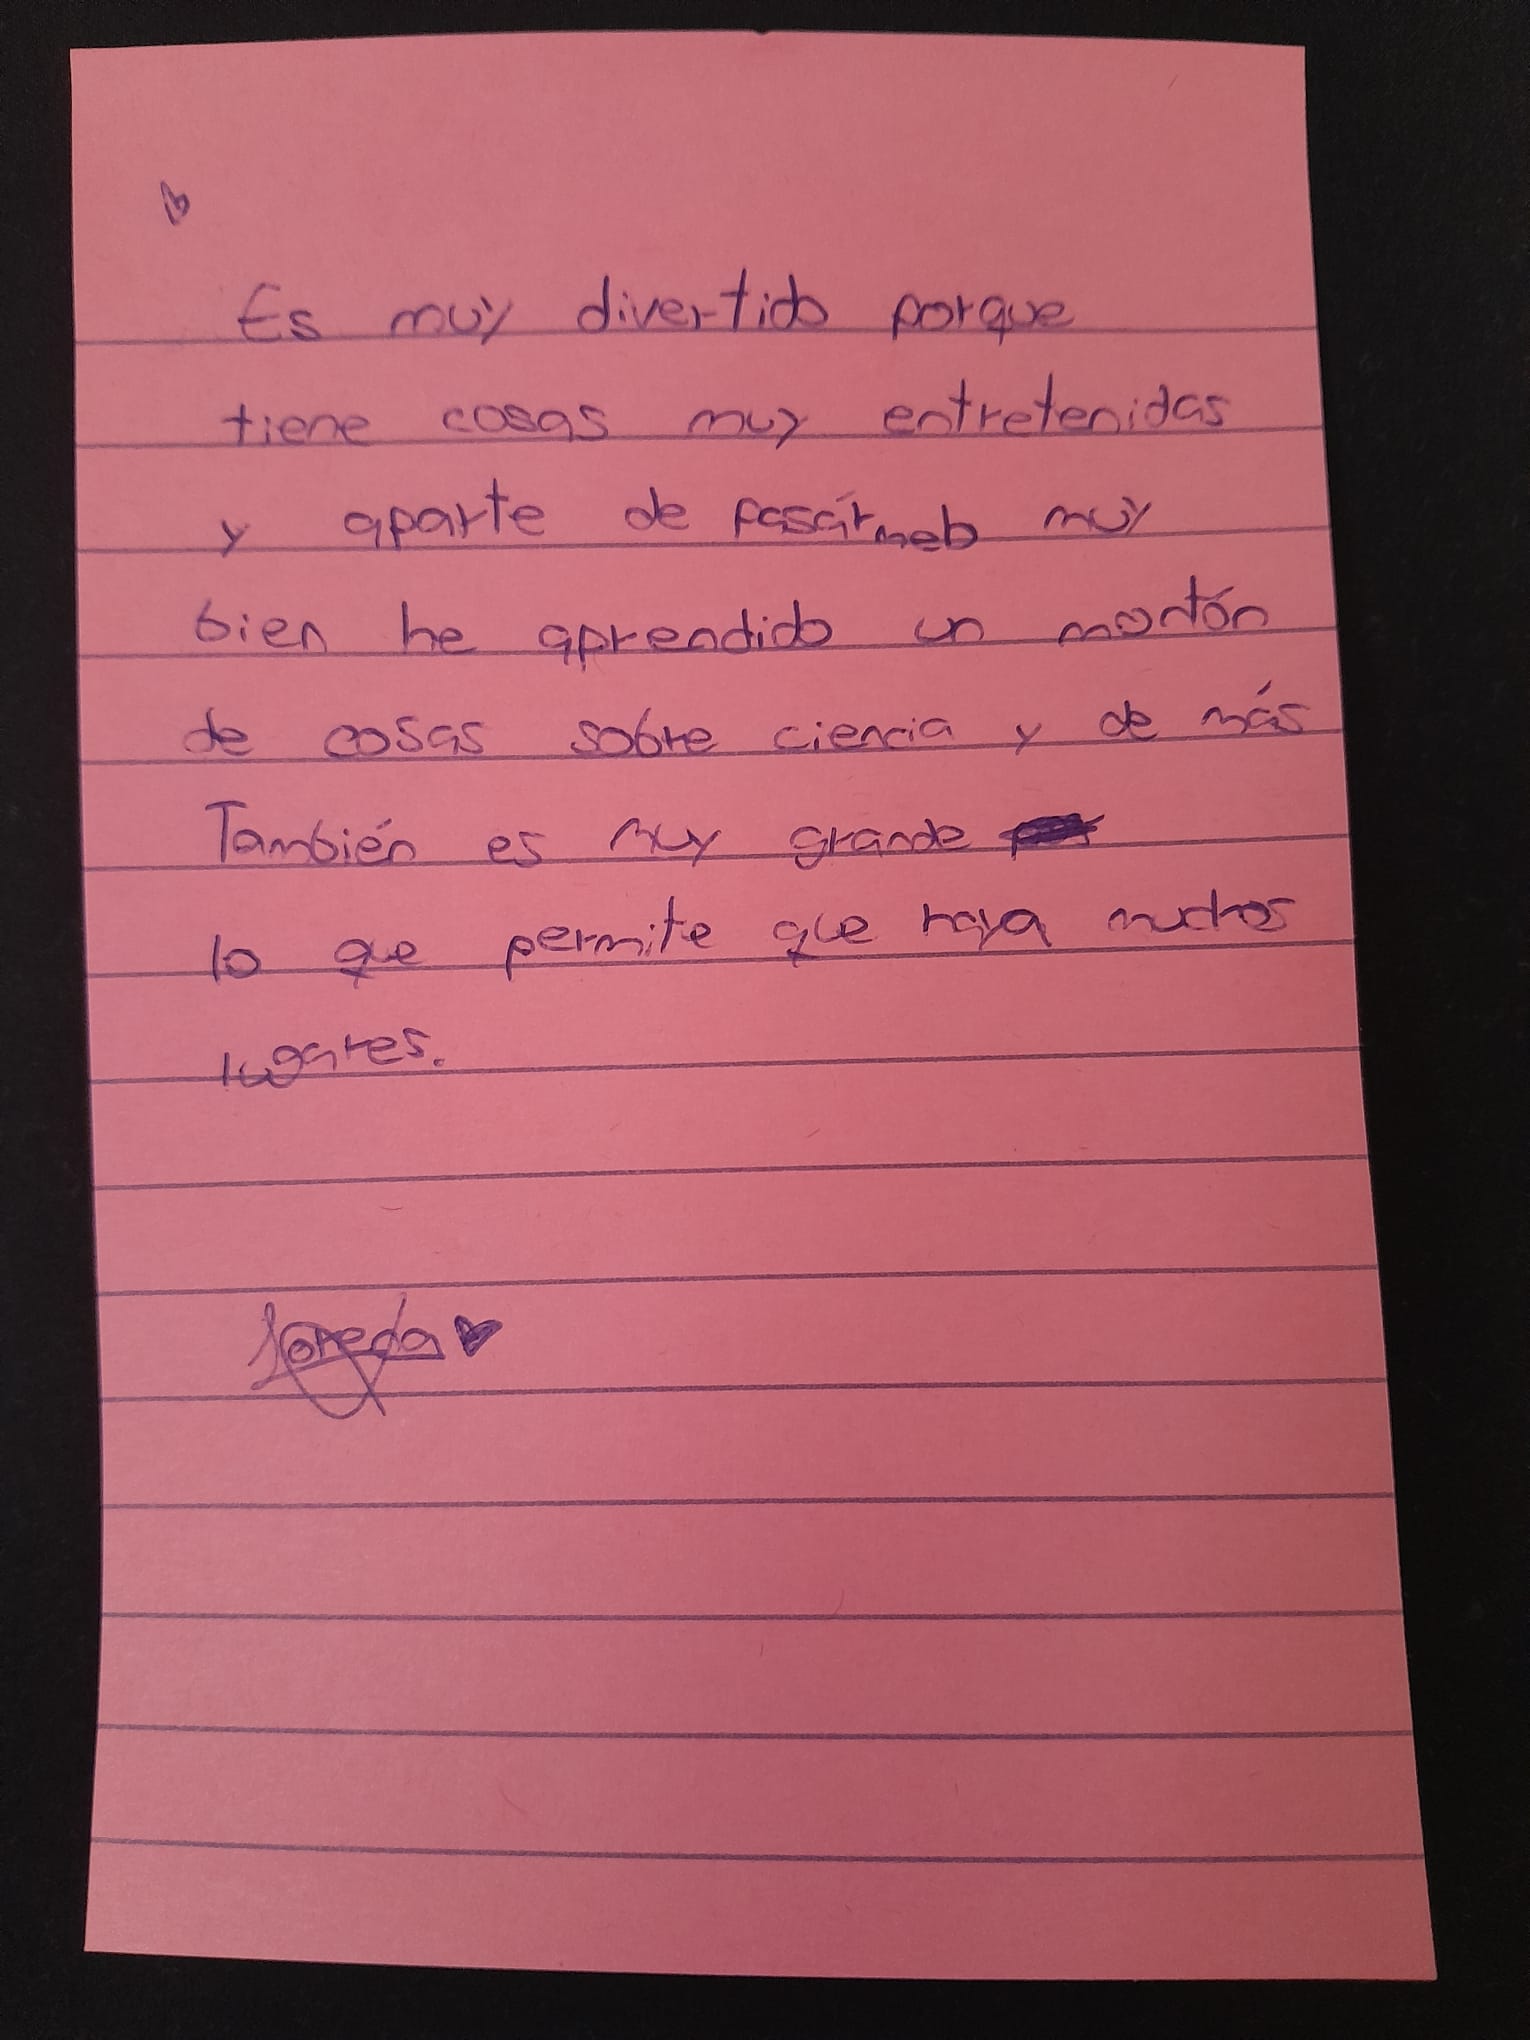 Es muy divertido porque
tiene cosas muy entretenidas
y aparte de pasármelo muy
bien he aprendido un montón
de cosas sobre ciencia y de más
También es muy grande
lo que permite que haya muchos
lugares.